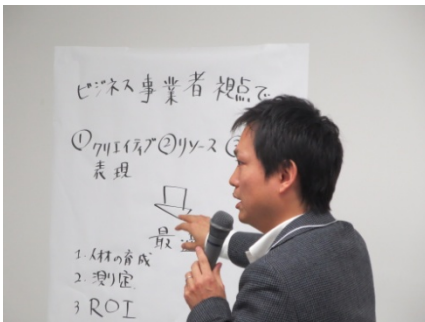 ビジネス事業者視点で
①クリエイティブ②リソース③
表現
最
1.人材の育成
2.測定
3 ROI